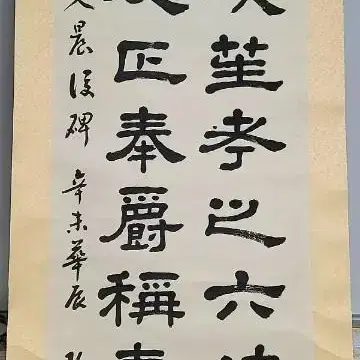 笙考之六
正奉爵稱
晨後碑 辛未華辰